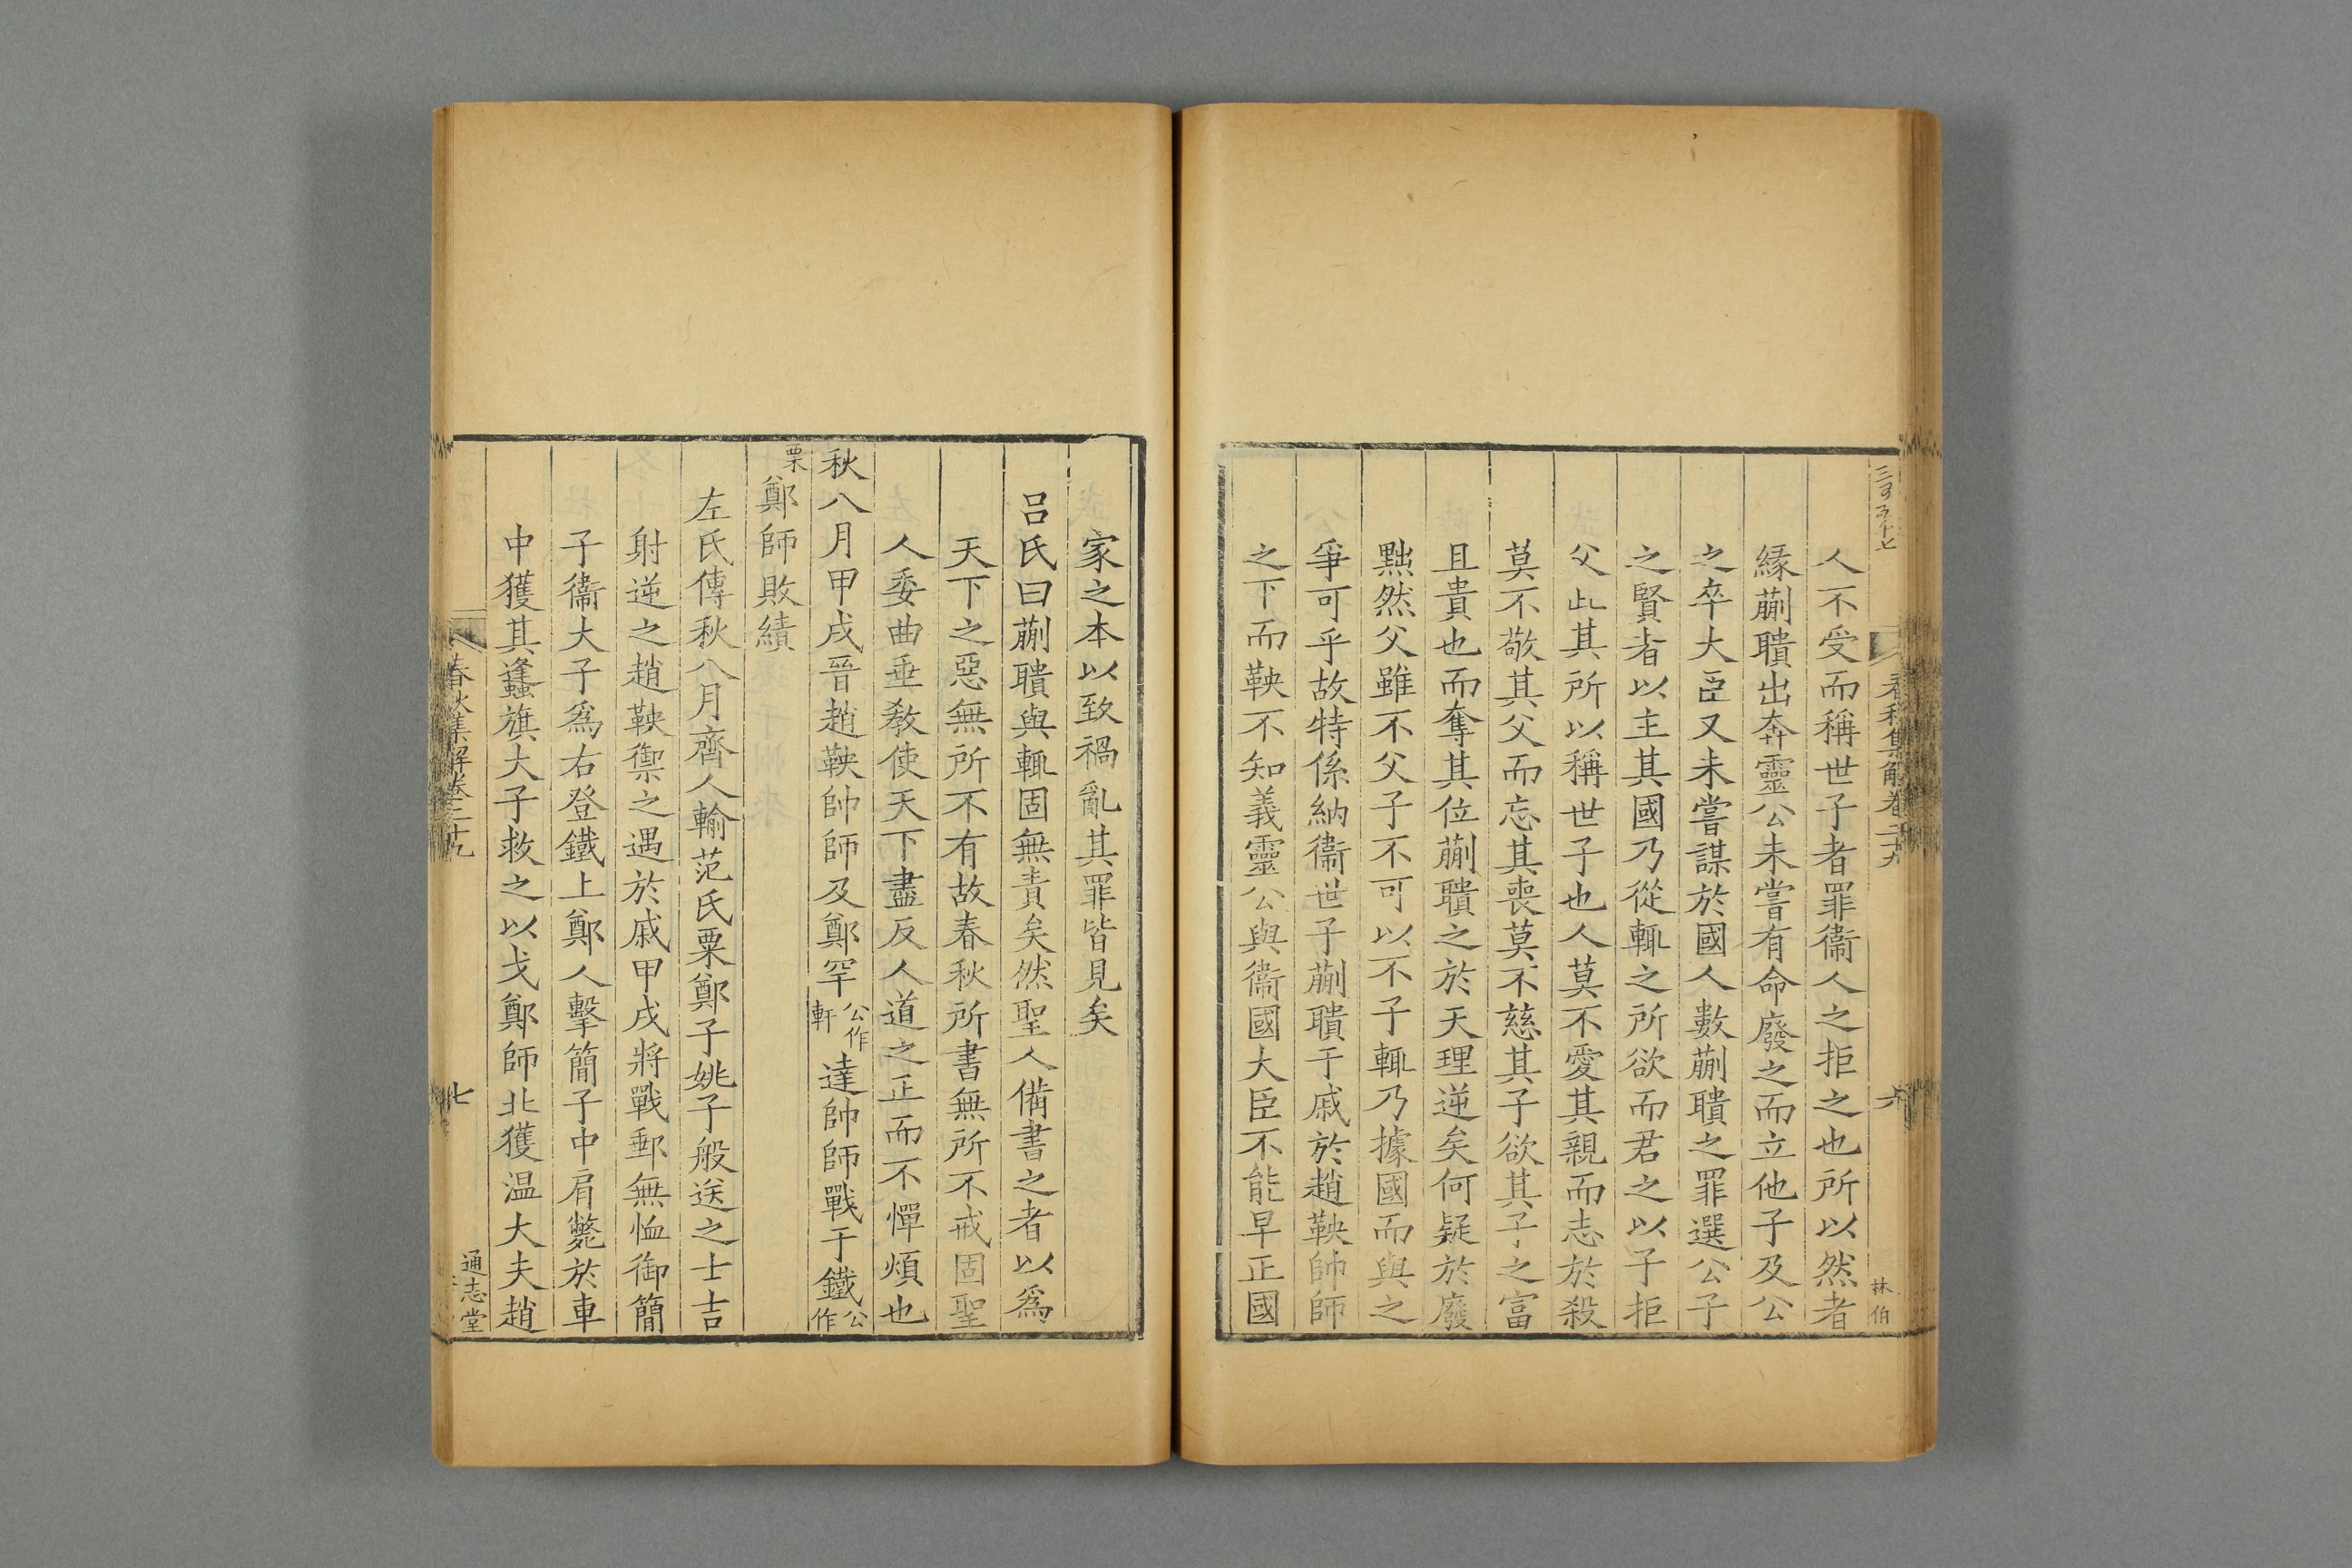 春秋集解卷二十九
六
林伯
人不受而稱世子者罪衞人之拒之也所以然者
緣蒯聵出奔靈公未嘗有命廢之而立他子及公
之卒大臣又未嘗謀於國人數蒯聵之罪選公子
之賢者以主其國乃從輒之所欲而君之以子拒
父此其所以稱世子也人莫不愛其親而志於殺
莫不敬其父而忘其喪莫不慈其子欲其子之富
且貴也而奪其位蒯聵之於天理逆矣何疑於廢
黜然父雖不父子不可以不子輒乃據國而與之
爭可乎故特係納衞世子蒯聵于戚於趙鞅帥師
之下而鞅不知義靈公與衞國大臣不能早正國
家之本以致禍亂其罪皆見矣
吕氏曰蒯聵與輒固無責矣然聖人備書之者以爲
天下之惡無所不有故春秋所書無所不戒固聖
人委曲垂敎使天下盡反人道之正而不憚煩也
秋八月甲戌晉趙鞅帥師及鄭罕公作軒達帥師戰于鐵公作
栗鄭師敗績
左氏傳秋八月齊人輸范氏粟鄭子姚子般送之士吉
射逆之趙鞅禦之遇於戚甲戌將戰郵無恤御簡
子衞大子爲右登鐵上鄭人擊簡子中肩斃於車
中獲其蠭旗大子救之以戈鄭師北獲温大夫趙
春秋集解卷二十九
七
通志堂